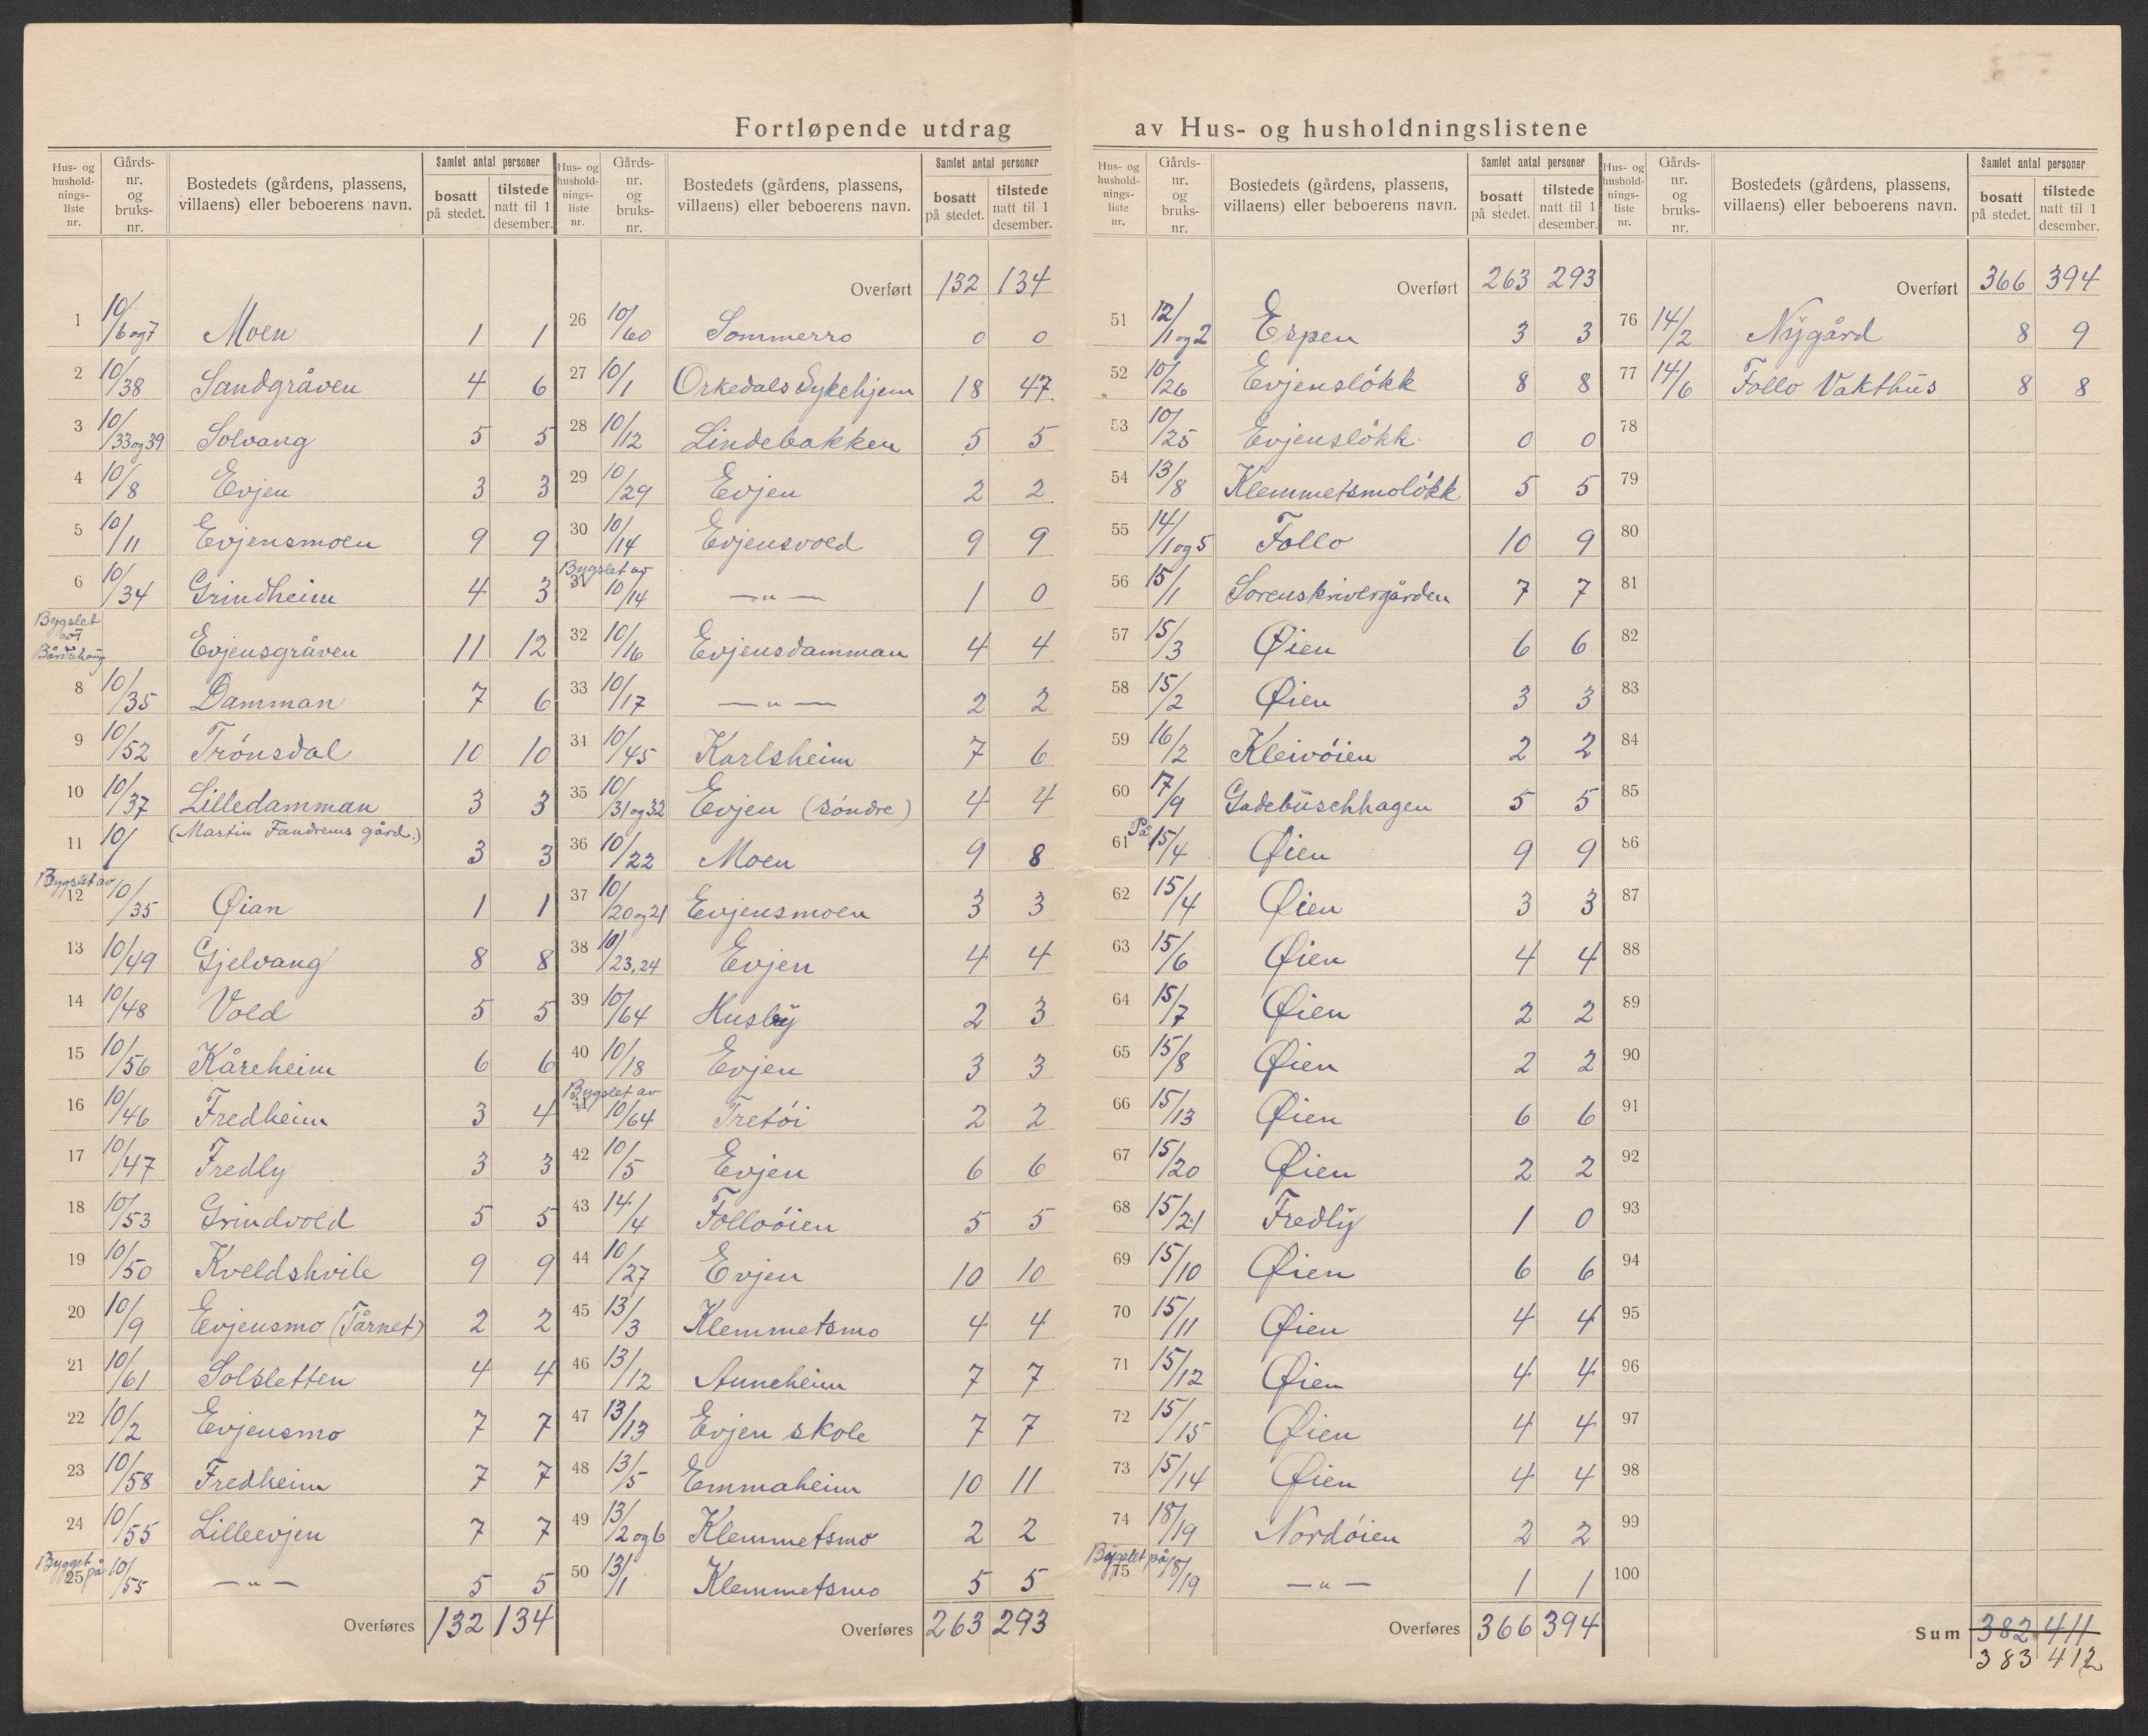 Fortløpende utdrag av Hus- og husholdningslistene
Hus- og husholdnings-liste nr. Gårds-nr. og bruks-nr. Bostedets (gårdens, plassens, villaens) eller beboerens navn. Samlet antal personer bosatt på stedet. tilstede natt til 1 desember.
1 10/6og7 Moen 1 1
2 10/38 Sandgråven 4 6
3 10/33og39 Solvang 5 5
4 10/8 Evjen 3 3
5 10/11 Evjensmoen 9 9
6 10/34 Grindheim 4 3
Bygslet av Evjensgråven 11 12
8 10/35 Damman 7 6
9 10/52 Trønsdal 10 10
10 10/37 Lilledamman 3 3
11 10/ (Martin Fandrems gård.) 3 3
Bygslet av
12 10/35 Øian 1 1
13 10/49 Gjelvang 8 8
14 10/48 Vold 5 5
15 10/56 Kåreheim 6 6
16 10/46 Fredheim 3 4
17 10/47 Fredly 3 3
18 10/53 Grindvold 5 5
19 10/50 Kveldshvile 9 9
20 10/9 Evjensmo (Tårnet) 2 2
21 10/61 Solsletten 4 4
22 10/2 Evjensmo 7 7
23 10/58 Fredheim 7 7
24 10/55 Lilleevjen 7 7
Bygget på
25 10/55 —〃— 5 5
Overføres 132 134
Hus- og husholdnings-liste nr. Gårds-nr. og bruks-nr. Bostedets (gårdens, plassens, villaens) eller beboerens navn. Samlet antal personer bosatt på stedet. tilstede natt til 1 desember.
Overført 132 134
26 10/60 Sommerro 0 0
27 10/1 Orkedals Sykehjem 18 47
28 10/12 Lindebakken 5 5
29 10/29 Evjen 2 2
30 10/14 Evjensvold 9 9
Bygslet av
31 10/14 —〃— 1 0
32 10/16 Evjensdamman 4 4
33 10/17 —〃— 2 2
34 10/45 Karlsheim 7 6
35 10/31og32 Evjen (søndre) 4 4
36 10/22 Moen 9 8
37 10/20og21 Evjensmoen 3 3
38 10/23,24 Evjen 4 4
39 10/64 Husby 2 3
40 10/18 Evjen 3 3
Bygslet av
41 10/64 Tretøi 2 2
42 10/5 Evjen 6 6
43 14/4 Folloøien 5 5
44 10/27 Evjen 10 10
45 13/3 Klemmetsmo 4 4
46 13/12 Anneheim 7 7
47 13/13 Evjen skole 7 7
48 13/5 Emmaheim 10 11
49 13/2og6 Klemmetsmo 2 2
50 13/1 Klemmetsmo 5 5
Overføres 263 293
Hus- og husholdnings-liste nr. Gårds-nr. og bruks-nr. Bostedets (gårdens, plassens, villaens) eller beboerens navn. Samlet antal personer bosatt på stedet. tilstede natt til 1 desember.
Overført 263 293
51 12/1og2 Espen 3 3
52 10/26 Evjensløkk 8 8
53 10/25 Evjensløkk 0 0
54 13/8 Klemmetsmoløkk 5 5
55 14/1og5 Follo 10 9
56 15/1 Sorenskrivergården 7 7
57 15/3 Øien 6 6
58 15/2 Øien 3 3
59 16/2 Kleivøien 2 2
60 17/9 Gadebuschhagen 5 5
61 På 15/4 Øien 9 9
62 15/4 Øien 3 3
63 15/6 Øien 4 4
64 15/7 Øien 2 2
65 15/8 Øien 2 2
66 15/13 Øien 6 6
67 15/20 Øien 2 2
68 15/21 Fredly 1 0
69 15/10 Øien 6 6
70 15/11 Øien 4 4
71 15/12 Øien 4 4
72 15/15 Øien 4 4
73 15/14 Øien 4 4
74 18/19 Nordøien 2 2
Bygslet på
75 18/19 —〃— 1 1
Overføres 366 394
Hus- og husholdnings-liste nr. Gårds-nr. og bruks-nr. Bostedets (gårdens, plassens, villaens) eller beboerens navn. Samlet antal personer bosatt på stedet. tilstede natt til 1 desember.
Overført 366 394
76 14/2 Nygård 8 9
77 14/6 Follo Vakthus 8 8
78
79
80
81
82
83
84
85
86
87
88
89
90
91
92
93
94
95
96
97
98
99
100
Sum 382 411
383 412